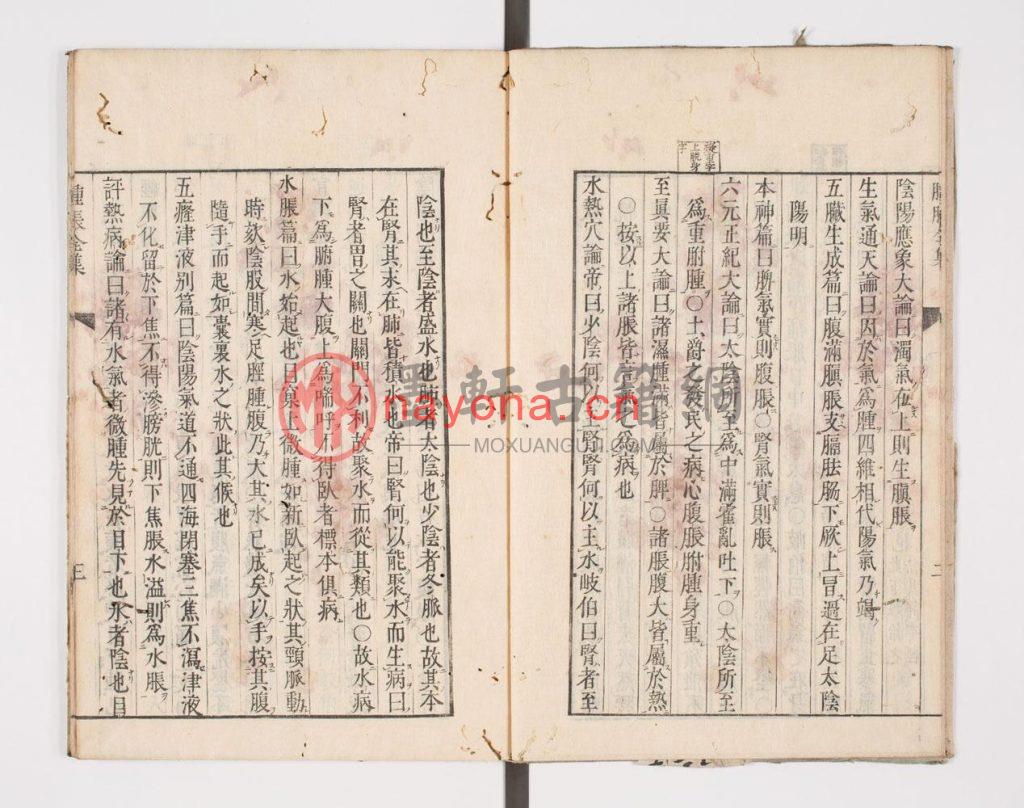 腫脹全集
陰陽應象大論曰濁氣在上則生䐜脹
生氣通天論曰因於氣爲腫四維相代陽氣乃竭
五臟生成篇曰腹滿䐜脹支膈胠肠下厥上冒過在足太陰
陽明
本神篇曰脾氣實則腹脹〇腎氣實則脹
六元正紀大論曰太陰所至爲中滿霍亂吐下〇太陰所至
爲重胕腫〇土爵之發民之病心腹脹胕腫身重
至眞要大論曰諸濕腫滿皆屬於脾〇諸脹腹大皆屬於熱
〇按以上諸脹皆言之爲病也
水熱穴論帝曰少陰何以主腎腎何以主水岐伯曰腎者至
陰也至陰者盛水也肺者太陰也少陰者冬脈也故其本
在腎其末在肺皆積水也帝曰腎何以能聚水而生病曰
腎者胃之關也關門不利故聚水而從其類也〇故水病
下爲腑腫大腹上爲喘呼不得臥者標本俱病
水脹篇曰水始起也目窠上微腫如新臥起之狀其頸脈動
時欬陰股間寒足脛腫腹乃大其水已成矣以手按其腹
隨手而起如囊裹水之狀此其候也
五癃津液別篇曰陰陽氣道不通四海閉塞三焦不瀉津液
不化留於下焦不得滲膀胱則下焦脹水溢則爲水脹
評熱病論曰諸有水氣者微腫先見於目下也水者陰也目
腫脹全集
三
墨軒古籍網
nayona.cn
MOXUANGUJI.COM